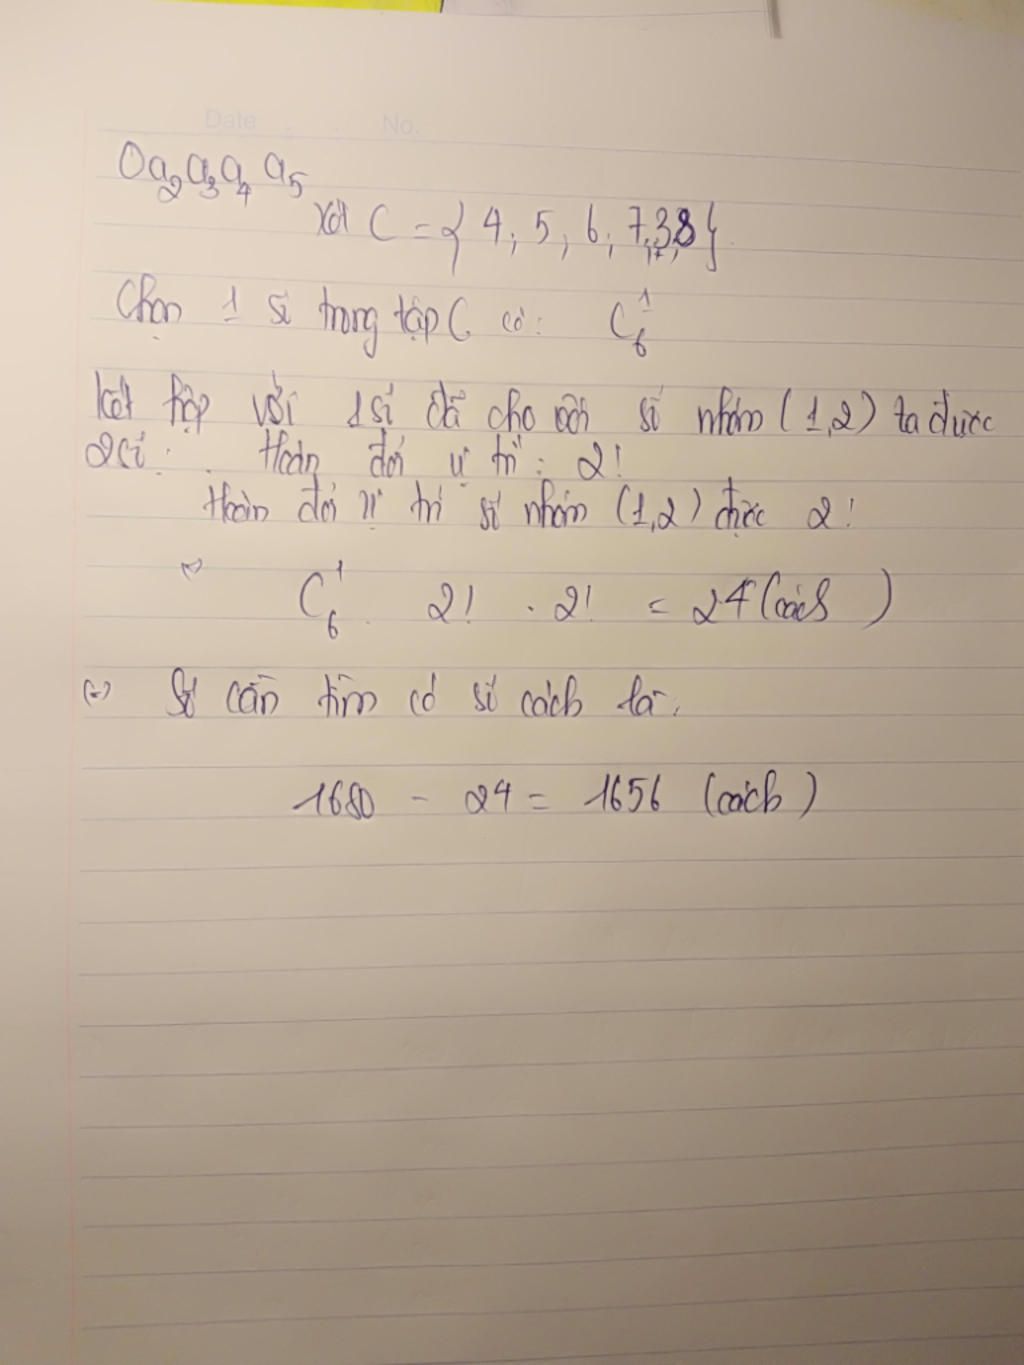 Date No.
0a₂a₃a₄a₅
xét C = { 4, 5, 6, 7, 3, 8 }
Chọn 1 số trong tập C có: C₆¹
kết hợp với 1 số đã cho với số nhóm (1,2) ta được
2 số: Hoán đổi vị trí: 2!
Hoán đổi vị trí số nhóm (1,2) được 2!
C₆¹ . 2! . 2! = 24 (cách)
(=) Số cần tìm có số cách là:
1680 - 24 = 1656 (cách)